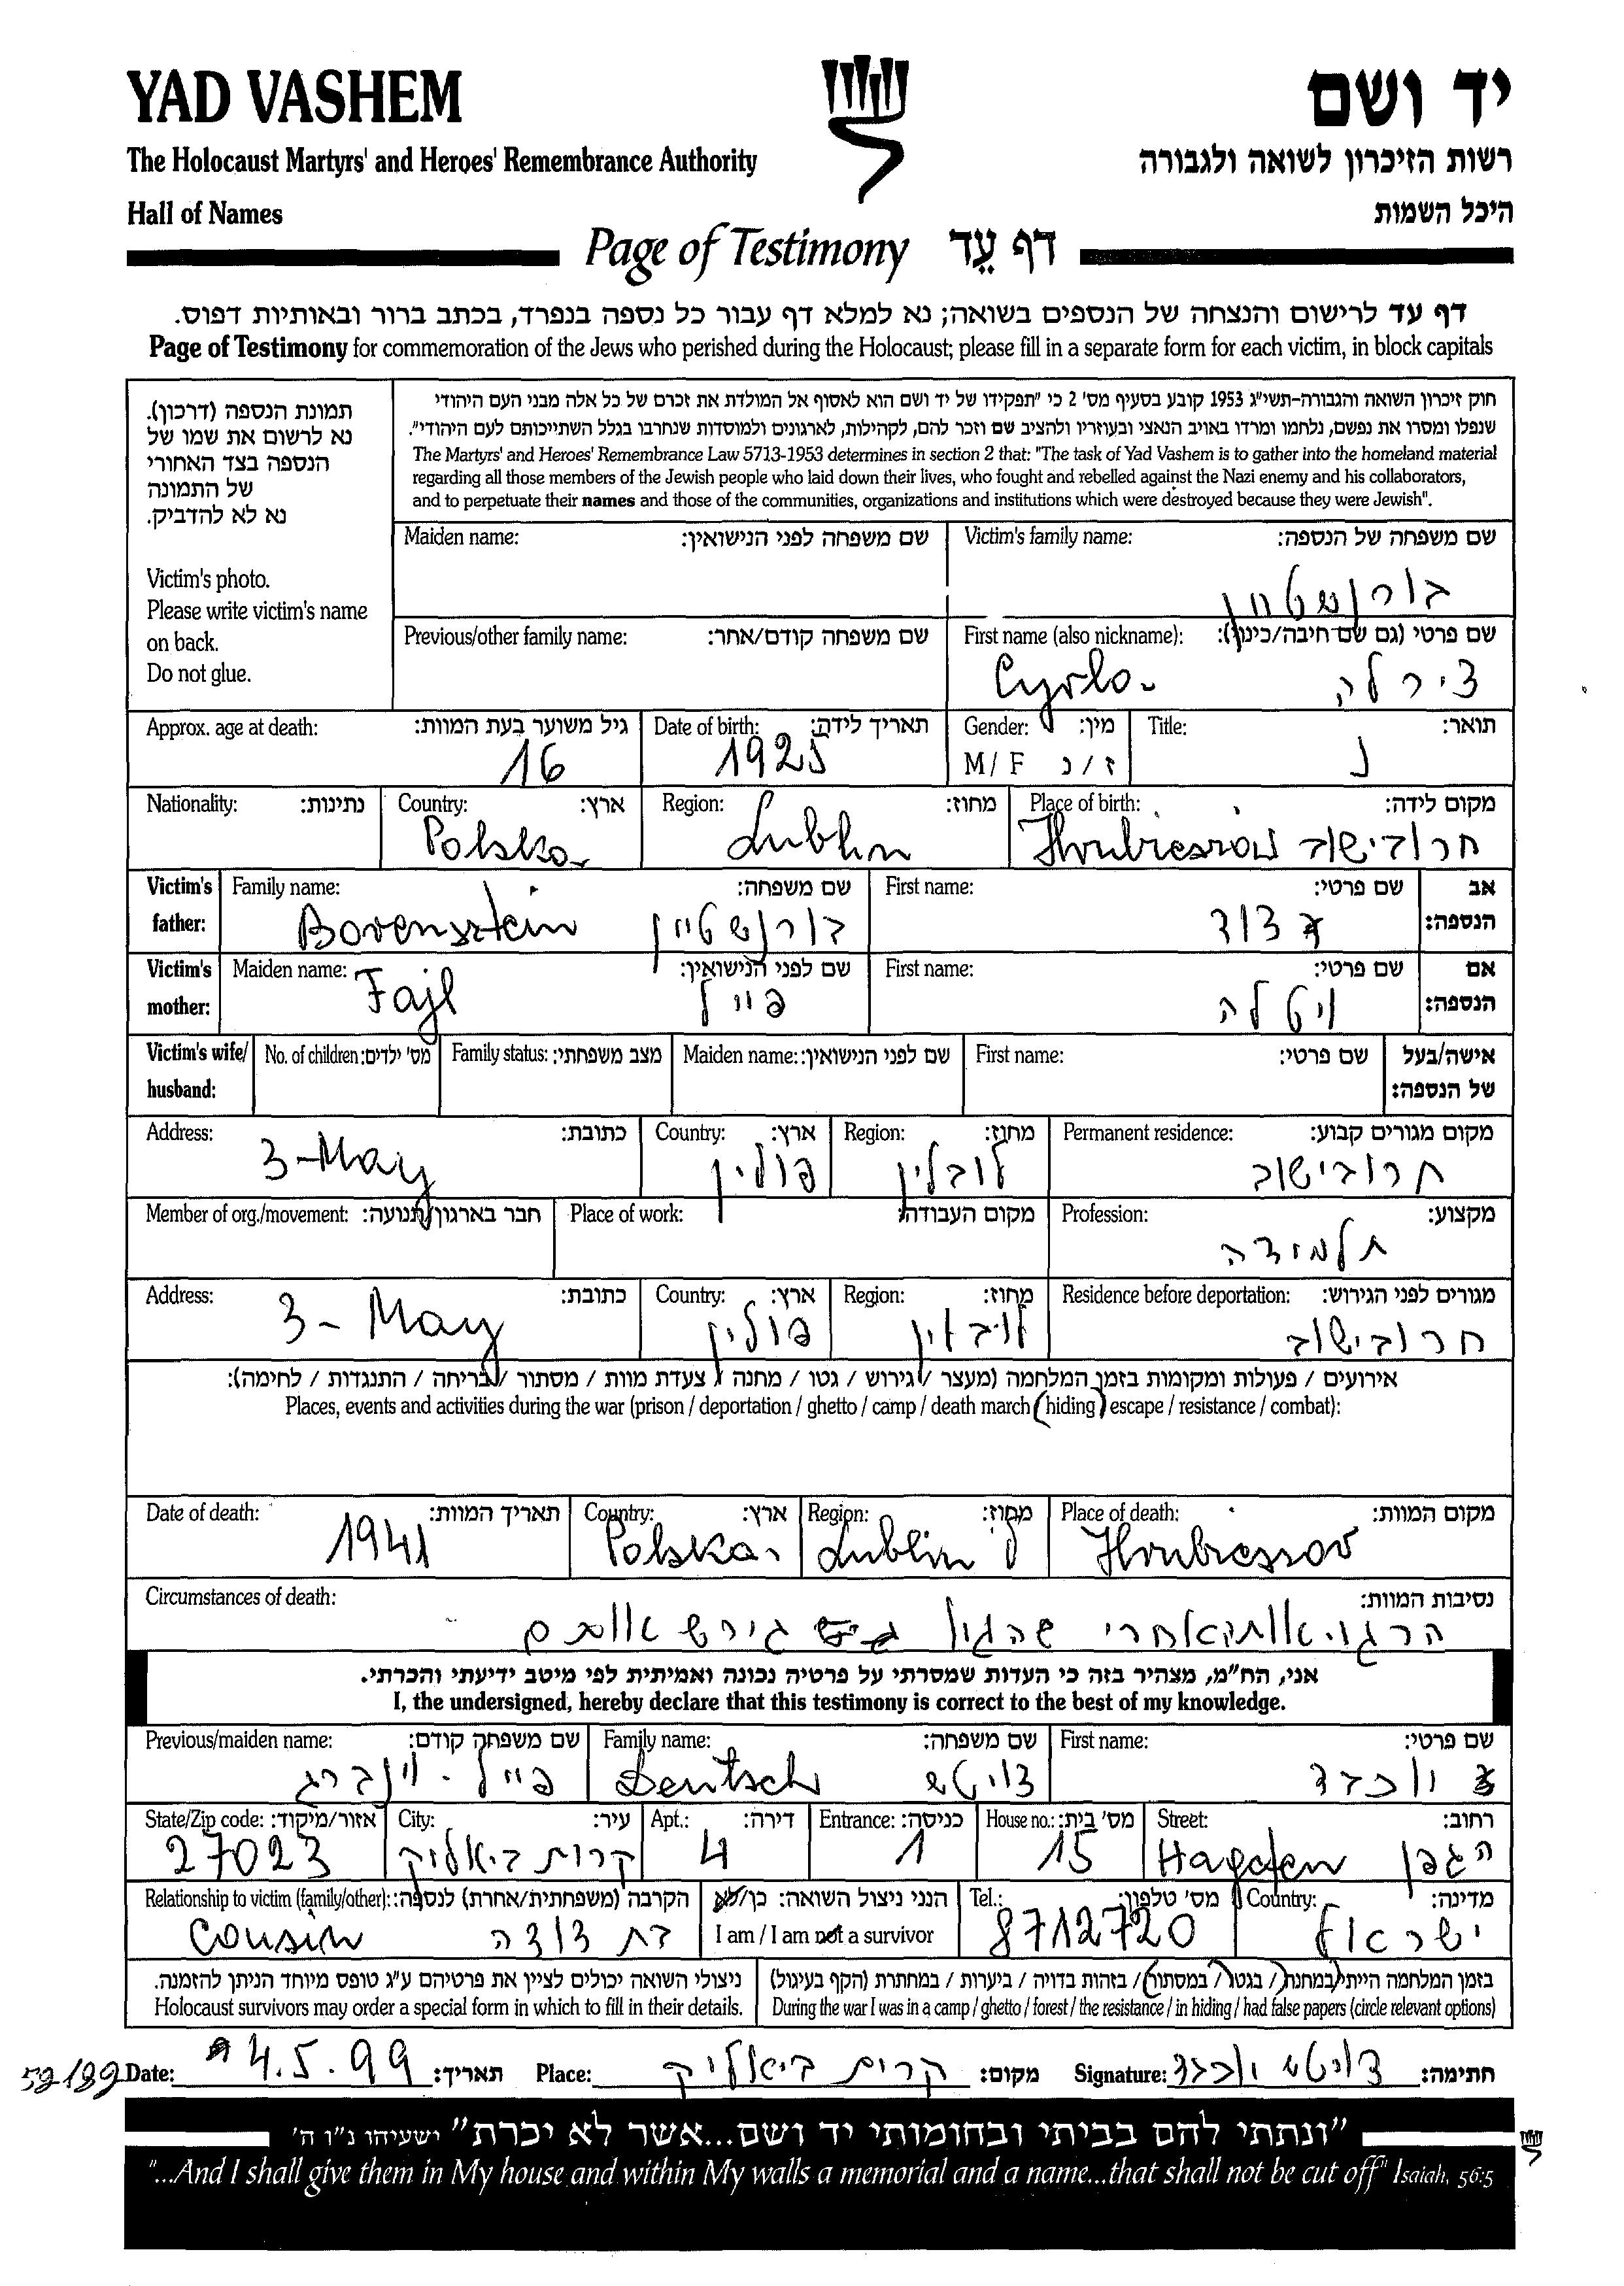 YAD VASHEM
יד ושם
The Holocaust Martyrs' and Heroes' Remembrance Authority
רשות הזיכרון לשואה ולגבורה
Hall of Names
היכל השמות
Page of Testimony דף עֵד
דף עד לרישום והנצחה של הנספים בשואה; נא למלא דף עבור כל נספה בנפרד, בכתב ברור ובאותיות דפוס.
Page of Testimony for commemoration of the Jews who perished during the Holocaust; please fill in a separate form for each victim, in block capitals
תמונת הנספה (דרכון).
נא לרשום את שמו של
הנספה בצד האחורי
של התמונה
נא לא להדביק.
Victim's photo.
Please write victim's name
on back.
Do not glue.
חוק זיכרון השואה והגבורה-תשי"ג 1953 קובע בסעיף מס' 2 כי "תפקידו של יד ושם הוא לאסוף אל המולדת את זכרם של כל אלה מבני העם היהודי
שנפלו ומסרו את נפשם, נלחמו ומרדו באויב הנאצי ובעוזריו ולהציב שם וזכר להם, לקהילות, לארגונים ולמוסדות שנחרבו בגלל השתייכותם לעם היהודי".
The Martyrs' and Heroes' Remembrance Law 5713-1953 determines in section 2 that: "The task of Yad Vashem is to gather into the homeland material
regarding all those members of the Jewish people who laid down their lives, who fought and rebelled against the Nazi enemy and his collaborators,
and to perpetuate their names and those of the communities, organizations and institutions which were destroyed because they were Jewish".
Maiden name: שם משפחה לפני הנישואין: Victim's family name: שם משפחה של הנספה:
בורנשטיין
Previous/other family name: שם משפחה קודם/אחר: First name (also nickname): שם פרטי (גם שם חיבה/כינוי):
Cyrla צירלה
Approx. age at death: גיל משוער בעת המוות: Date of birth: תאריך לידה: Gender: מין: Title: תואר:
16 1925 M / F ז / נ נ
Nationality: נתינות: Country: ארץ: Region: מחוז: Place of birth: מקום לידה:
Polska Lublin Hrubieszów חרובישוב
Victim's father: Family name: שם משפחה: First name: שם פרטי: אב הנספה:
Borensztein בורנשטיין דוד
Victim's mother: Maiden name: שם לפני הנישואין: First name: שם פרטי: אם הנספה:
Fajl פייל ויטלה
Victim's wife/ husband: No. of children: מס' ילדים: Family status: מצב משפחתי: Maiden name: שם לפני הנישואין: First name: שם פרטי: אישה/בעל של הנספה:
Address: כתובת: Country: ארץ: Region: מחוז: Permanent residence: מקום מגורים קבוע:
3-May פולין לובלין חרובישוב
Member of org./movement: חבר בארגון/תנועה: Place of work: מקום העבודה: Profession: מקצוע:
תלמידה
Address: כתובת: Country: ארץ: Region: מחוז: Residence before deportation: מגורים לפני הגירוש:
3- May פולין לובלין חרובישוב
אירועים / פעולות ומקומות בזמן המלחמה (מעצר / גירוש / גטו / מחנה / צעדת מוות / מסתור / בריחה / התנגדות / לחימה):
Places, events and activities during the war (prison / deportation / ghetto / camp / death march / hiding / escape / resistance / combat):
Date of death: תאריך המוות: Country: ארץ: Region: מחוז: Place of death: מקום המוות:
1941 Polska Lublin Hrubieszov
Circumstances of death: נסיבות המוות:
הרגו אותה אחרי
אני, הח"מ, מצהיר בזה כי העדות שמסרתי על פרטיה נכונה ואמיתית לפי מיטב ידיעתי והכרתי.
I, the undersigned, hereby declare that this testimony is correct to the best of my knowledge.
Previous/maiden name: שם משפחה קודם: Family name: שם משפחה: First name: שם פרטי:
פייל - וינברג Deutsch דויטש יוכבד
State/Zip code: אזור/מיקוד: City: עיר: Apt.: דירה: Entrance: כניסה: House no.: מס' בית: Street: רחוב:
27023 קרית ביאליק 4 1 15 Hagefen הגפן
Relationship to victim (family/other): הקרבה (משפחתית/אחרת) לנספה: הנני ניצול השואה: כן/לא Tel.: מס' טלפון: Country: מדינה:
Cousin בת דודה I am / I am not a survivor 8712720 ישראל
ניצולי השואה יכולים לציין את פרטיהם ע"ג טופס מיוחד הניתן להזמנה. בזמן המלחמה הייתי במחנה / בגטו / במסתור / ביערות / במחתרת / בזהות בדויה (הקף בעיגול)
Holocaust survivors may order a special form in which to fill in their details. During the war I was in a camp / ghetto / forest / the resistance / in hiding / had false papers (circle relevant options)
52/189 Date: 4.5.99 תאריך: Place: קרית ביאליק מקום: Signature: דויטש יוכבד חתימה:
"ונתתי להם בביתי ובחומותי יד ושם...אשר לא יכרת" ישעיהו נ"ו ה'
"...And I shall give them in My house and within My walls a memorial and a name...that shall not be cut off" Isaiah, 56:5